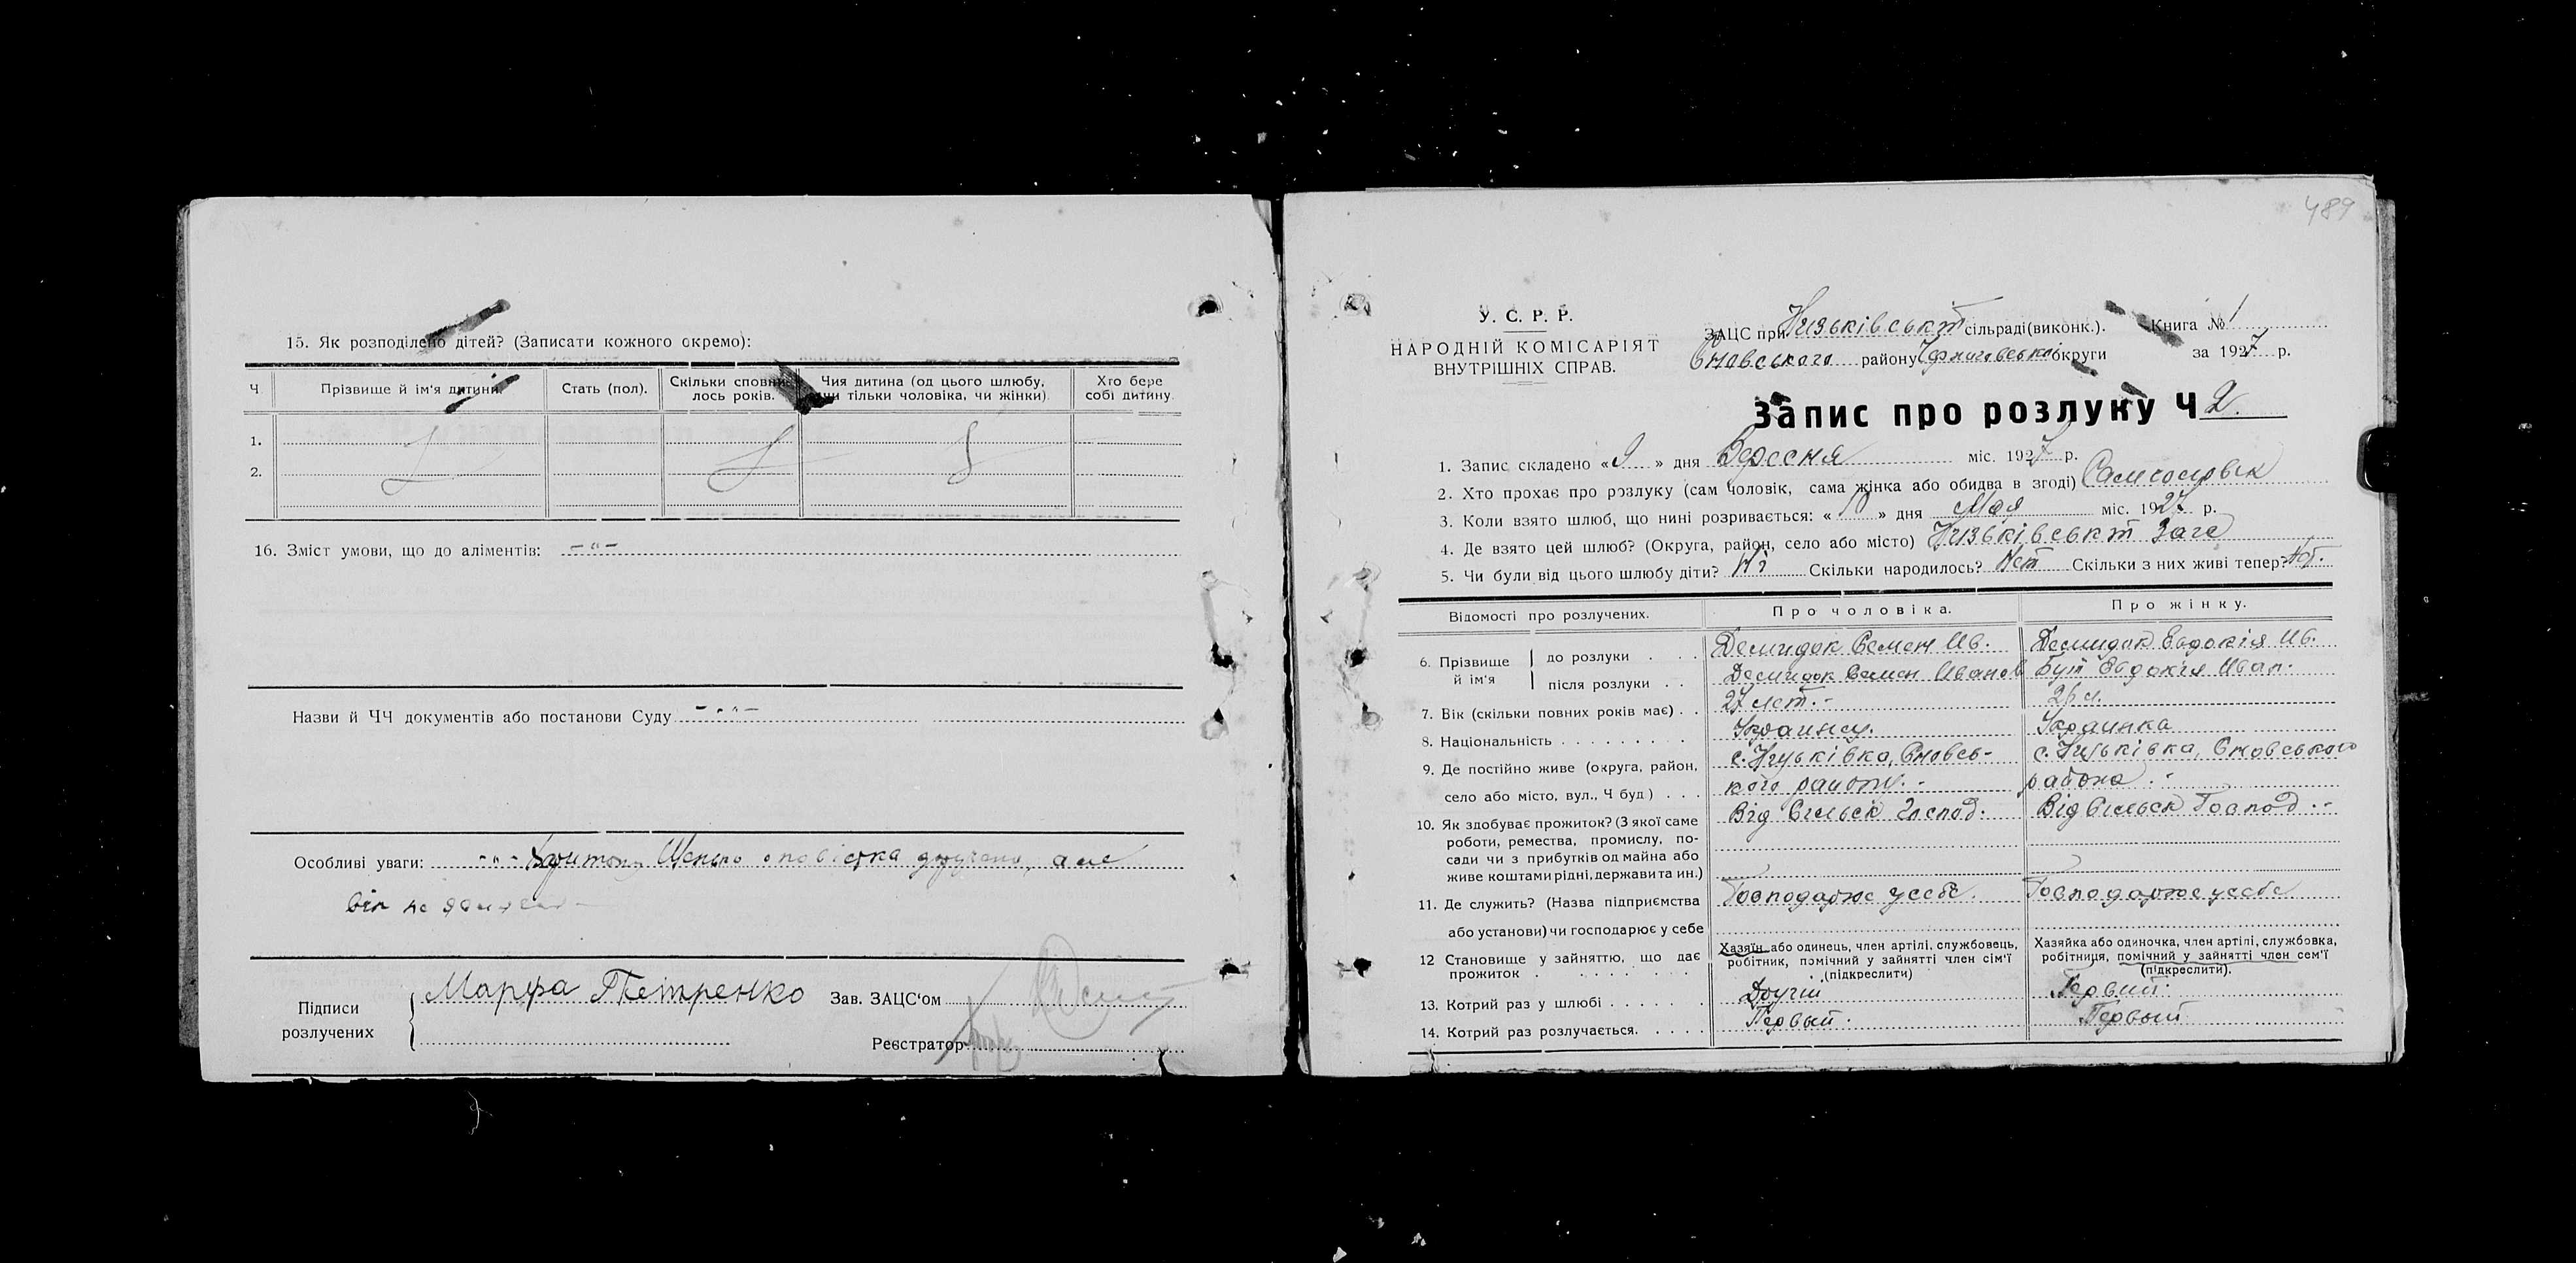 15. Як розподілено дітей? (Записати кожного окремо):
Ч. Прізвище й ім'я дитини. Стать (пол). Скільки сповнилось років. Чия дитина (од цього шлюбу, чи тільки чоловіка, чи жінки). Хто бере собі дитину.
1.
2.
16. Зміст умови, що до аліментів: -"-
Назви й ЧЧ документів або постанови Суду -"-
Особливі уваги: -"- повістка вручена, але
він не
Підписи розлучених
Марфа Петренко
Зав. ЗАЦС'ом
Реєстратор
489
У. С. Р. Р.
НАРОДНІЙ КОМІСАРІЯТ
ВНУТРІШНІХ СПРАВ.
ЗАЦС при Низьківськт сільраді (виконк.). Книга № 1
Сновського району Черниговської округи за 1927 р.
Запис про розлуку Ч 2.
1. Запис складено «9» дня Вересня міс. 1927 р.
2. Хто прохає про розлуку (сам чоловік, сама жінка або обидва в згоді) Сам чоловек
3. Коли взято шлюб, що нині розривається: «10» дня Мая міс. 1927 р.
4. Де взято цей шлюб? (Округа, район, село або місто) Низьківськт Загс
5. Чи були від цього шлюбу діти? Ні Скільки народилось? Нет Скільки з них живі тепер? Нет.
Відомості про розлучених. Про чоловіка. Про жінку.
6. Прізвище й ім'я до розлуки Демидок Семен Ив. Демидок Евдокія Ив.
після розлуки Демидок Семен Иванов Бут Евдокія Иван.
7. Вік (скільки повних років має) 27 лет.- 26 л.
8. Національність Украинец. Украинка
9. Де постійно живе (округа, район, с. Низьківка, Сновсь- с. Низьківка, Сновського
село або місто, вул., Ч буд) кого району.- района.-
10. Як здобуває прожиток? (З якої саме Від Сільськ Господ. Від Сільськ Господ.-
роботи, ремества, промислу, по-
сади чи з прибутків од майна або
живе коштами рідні, держави та ин.)
11. Де служить? (Назва підприємства Господарює у себе. Господарює у себе
або установи) чи господарює у себе
12 Становище у зайняттю, що дає прожиток
Хазяїн або одинець, член артілі, службовець, робітник, помічний у зайнятті член сім'ї (підкреслити)
Хазяйка або одиночка, член артілі, службовка, робітниця, помічний у зайнятті член сем'ї (підкреслити).
13. Котрий раз у шлюбі Другий Первий.
14. Котрий раз розлучається. Первый. Первый